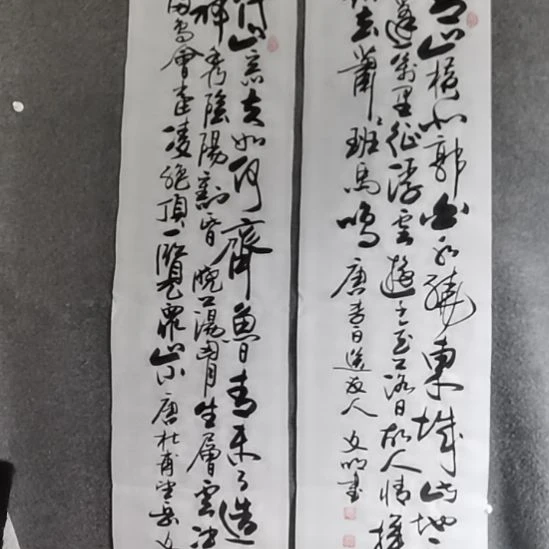 山橫北郭白水繞東城此地
蓬萬里征浮雲遊子意落日故人情揮
去蕭蕭班馬鳴 唐李白送友人 文明書
岱宗夫如何齊魯青未了造
神秀陰陽割昏曉盪胸生層雲決
歸鳥會當凌絕頂一覽眾山小 唐杜甫望岳 文